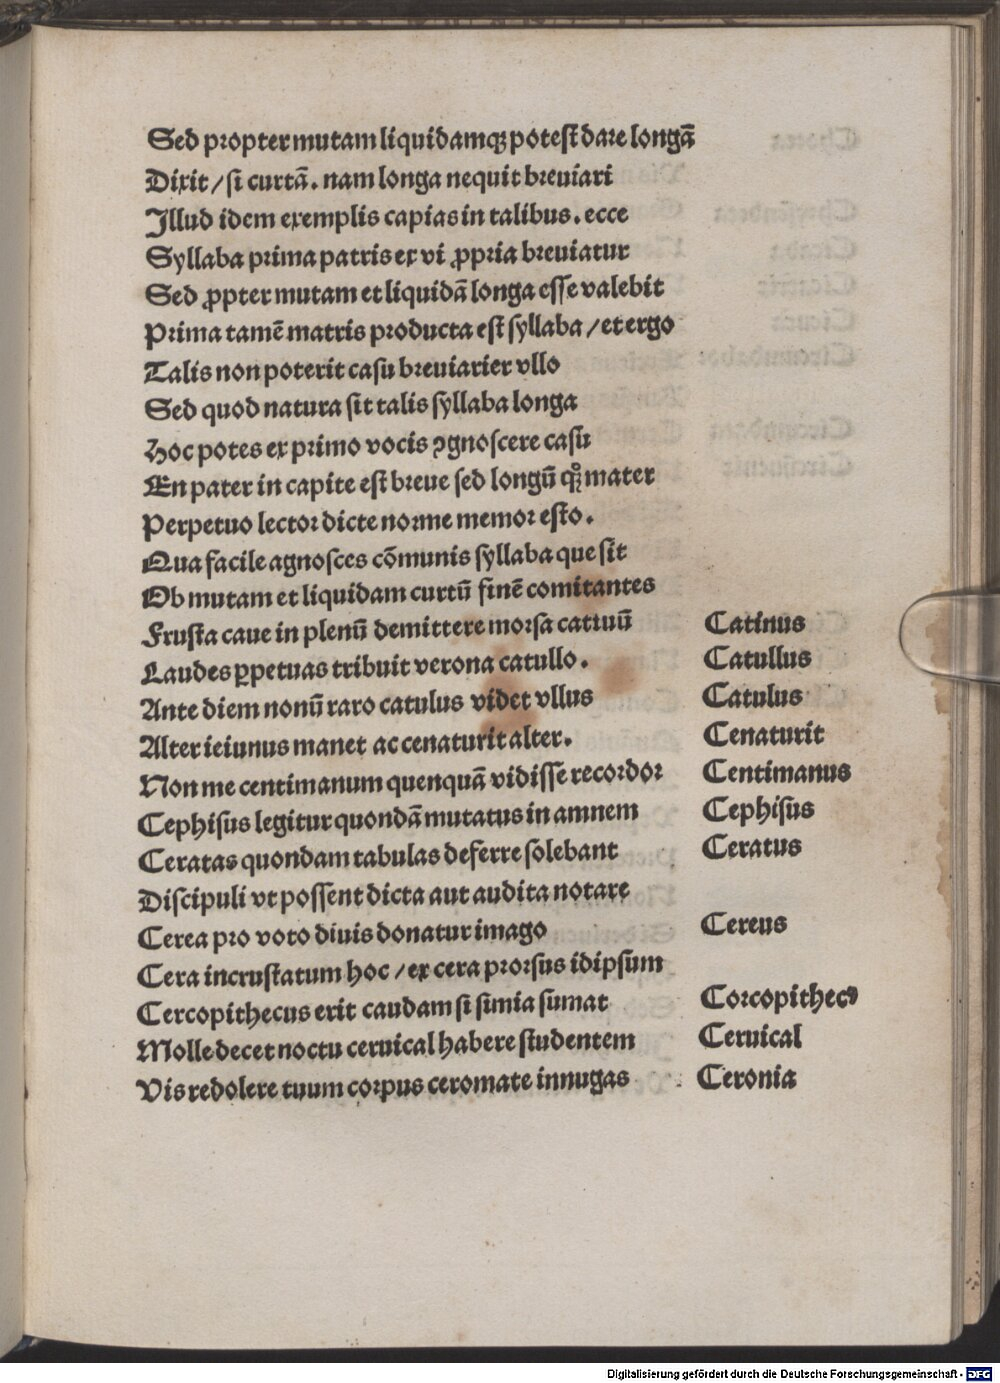 Sed propter mutam liquidamqꝫ potest dare longā
Dixit / si curtā. nam longa nequit breuiari
Illud idem exemplis capias in talibus. ecce
Syllaba prima patris ex vi ꝓpria breuiatur
Sed ꝓpter mutam et liquidā longa esse valebit
Prima tamē matris producta est syllaba / et ergo
Talis non poterit casu breuiarier vllo
Sed quod natura sit talis syllaba longa
Hoc potes ex primo vocis ꝯgnoscere casu
En pater in capite est breue sed longū mater
Perpetuo lector dicte norme memor esto.
Qua facile agnosces cōmunis syllaba que sit
Ob mutam et liquidam curtū finē comitantes
Frusta caue in plenū demittere morsa catinū Catinus
Laudes ꝑpetuas tribuit verona catullo. Catullus
Ante diem nonū raro catulus videt vllus Catulus
Alter ieiunus manet ac cenaturit alter. Cenaturit
Non me centimanum quenquā vidisse recordor Centimanus
Cephisus legitur quondā mutatus in amnem Cephisus
Ceratas quondam tabulas deferre solebant Ceratus
Discipuli vt possent dicta aut audita notare
Cerea pro voto diuis donatur imago Cereus
Cera incrustatum hoc / ex cera prorsus idipsum
Cercopithecus erit caudam si simia sumat Corcopithecꝰ
Molle decet noctu ceruical habere studentem Ceruical
Vis redolere tuum corpus ceromate innugas Ceronia
Digitalisierung gefördert durch die Deutsche Forschungsgemeinschaft - DFG